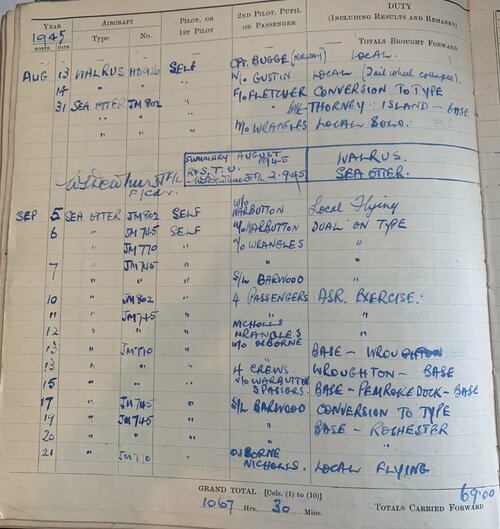 YEAR AIRCRAFT PILOT, OR 1ST PILOT 2ND PILOT, PUPIL OR PASSENGER DUTY (INCLUDING RESULTS AND REMARKS)
1945
MONTH DATE Type No.
TOTALS BROUGHT FORWARD
AUG 13 WALRUS HD926 SELF CPT. BUGGE (NORWAY) LOCAL.
14 " " " W/O GUSTIN LOCAL (Tail wheel collapse).
31 SEA OTTER JM802 " F/O FLETCHER CONVERSION TO TYPE
" " " " THORNEY ISLAND - BASE
" " " W/O WRANGLES LOCAL SOLO.
SUMMARY AUGUST 1945 WALRUS.
F/L 2-9-45 SEA OTTER.
F/L
SEP 5 SEA OTTER JM802 SELF W/O WARBUTTON Local Flying
6 " JM745 SELF W/O WARBUTTON DUAL ON TYPE
" JM770 " W/O WRANGLES "
7 " JM745 " "
" " " S/L BARWOOD "
10 " JM802 " 4 PASSENGERS ASR. EXERCISE.
11 " JM745 " "
12 " " " NICHOLLS WRANGLES "
13 " JM770 " W/O OSBORNE BASE - WROUGHTON
13 " " " 4 CREWS. WROUGHTON - BASE
15 " " " W/O WARBUTTON 3 PASSGRS. BASE - PEMROKE DOCK - BASE
17 " JM745 " S/L BARWOOD CONVERSION TO TYPE
19 " JM745 " BASE - ROCHESTER
20 " " " "
21 " JM770 " OSBORNE NICHOLLS. LOCAL FLYING
GRAND TOTAL [Cols. (1) to (10)] 69.00
1067 Hrs. 30 Mins. TOTALS CARRIED FORWARD